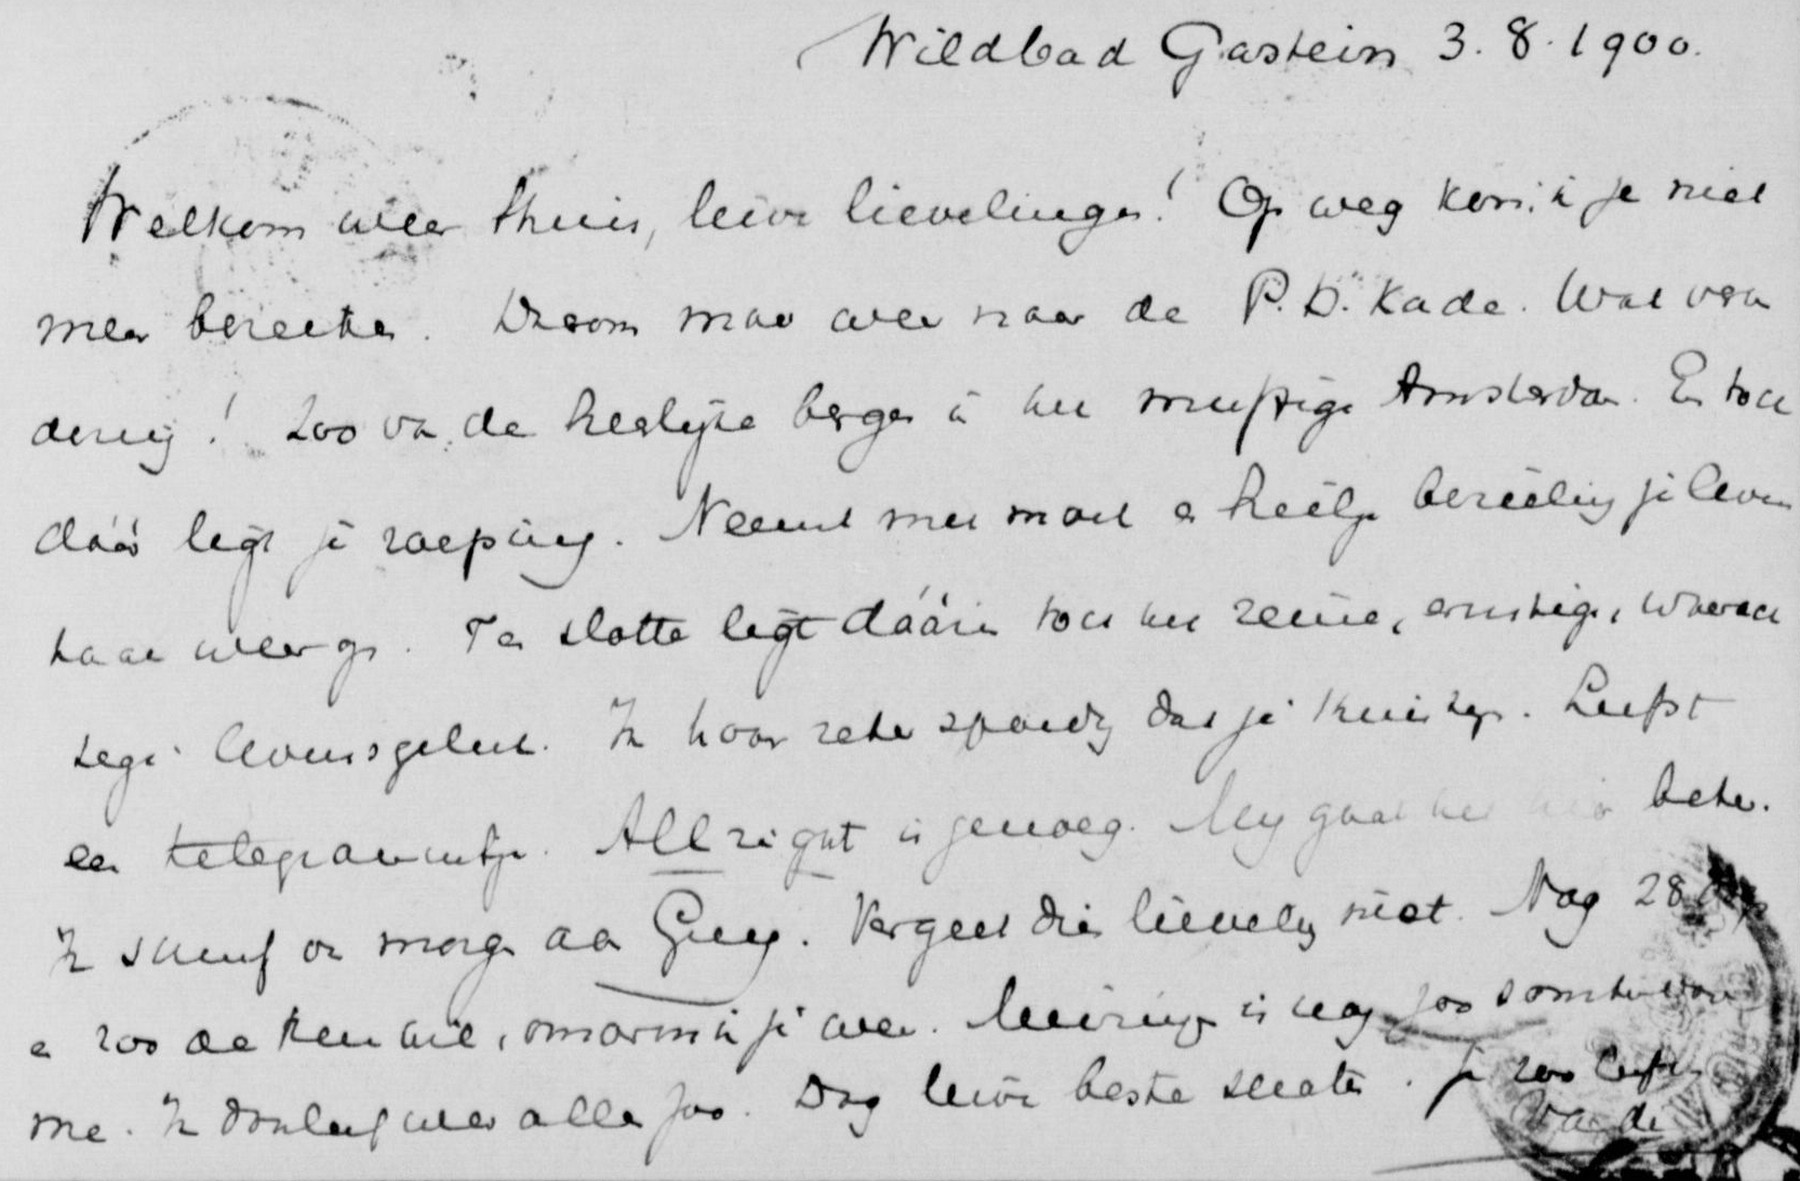 Wildbad Gastein 3.8.1900.
Welkom weer thuis, lieve lievelingen! Op weg kon ik je niet
meer bereiken. Daarom maar weer naar de P.H. Kade. Wat veran
dering! Zoo van de heerlijke bergen in het muffige Amsterdam. En toch
dáár ligt je roeping. Neemt met moed en heilige bezieling je leven
taak weer op. Ten slotte ligt dáárin toch het reine, ernstige, waarach
tige levensgeluk. Ik hoor zeker spoedig dat je thuis bent. Liefst
een telegrammetje. All right is genoeg. Mij gaat het hier beter.
Ik schreef van morgen aan Guus. Vergeet die lieveling niet. Nog 28 dagen
en zoo de Heer wil, omarm ik je weer. is nog zoo somber voor
me. Ik alles zoo. Dag lieve beste schatten. Je zoo liefh.
Vader